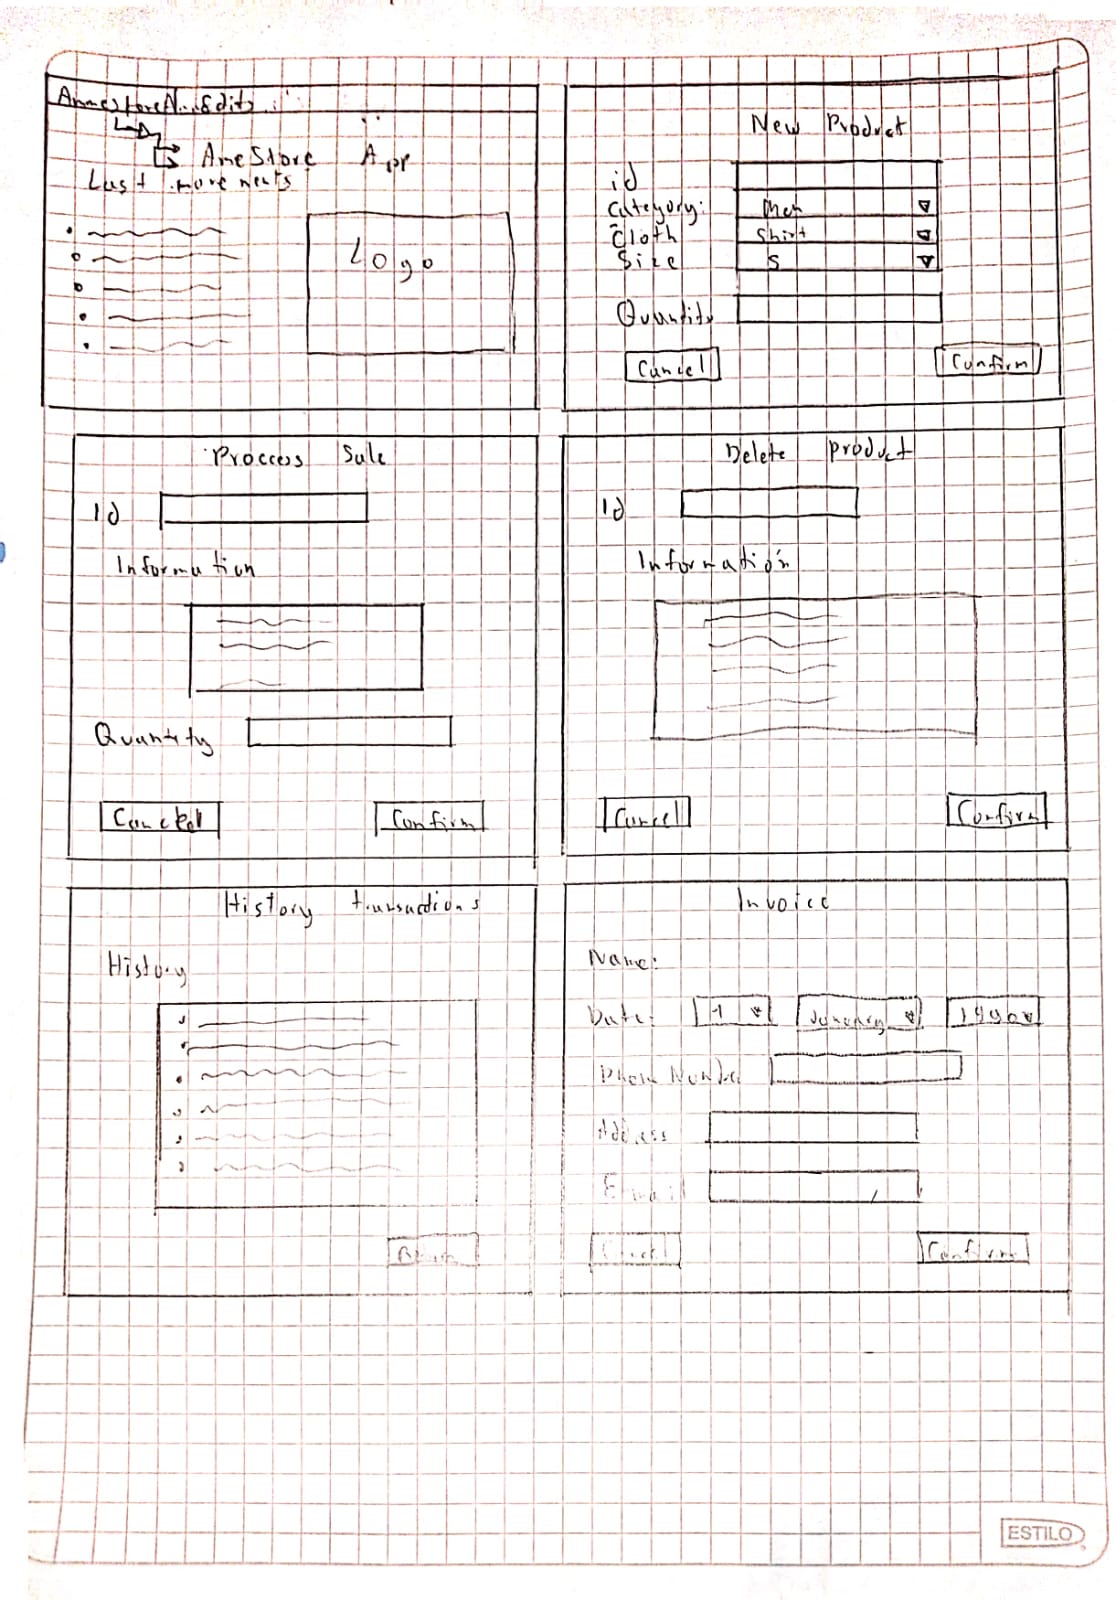 AmeStore App
Last movements
Logo
New Product
id
Category: Men
Cloth Shirt
Size S
Quantity
Cancel Confirm
Proccess Sale
Id
Information
Quantity
Confirm
Delete product
Id
Informatión
Cancel Confirm
History transactions
History
Invoice
Name:
Date: 1 1990
Phone Number
Address
Email
Cancel Confirm
ESTILO